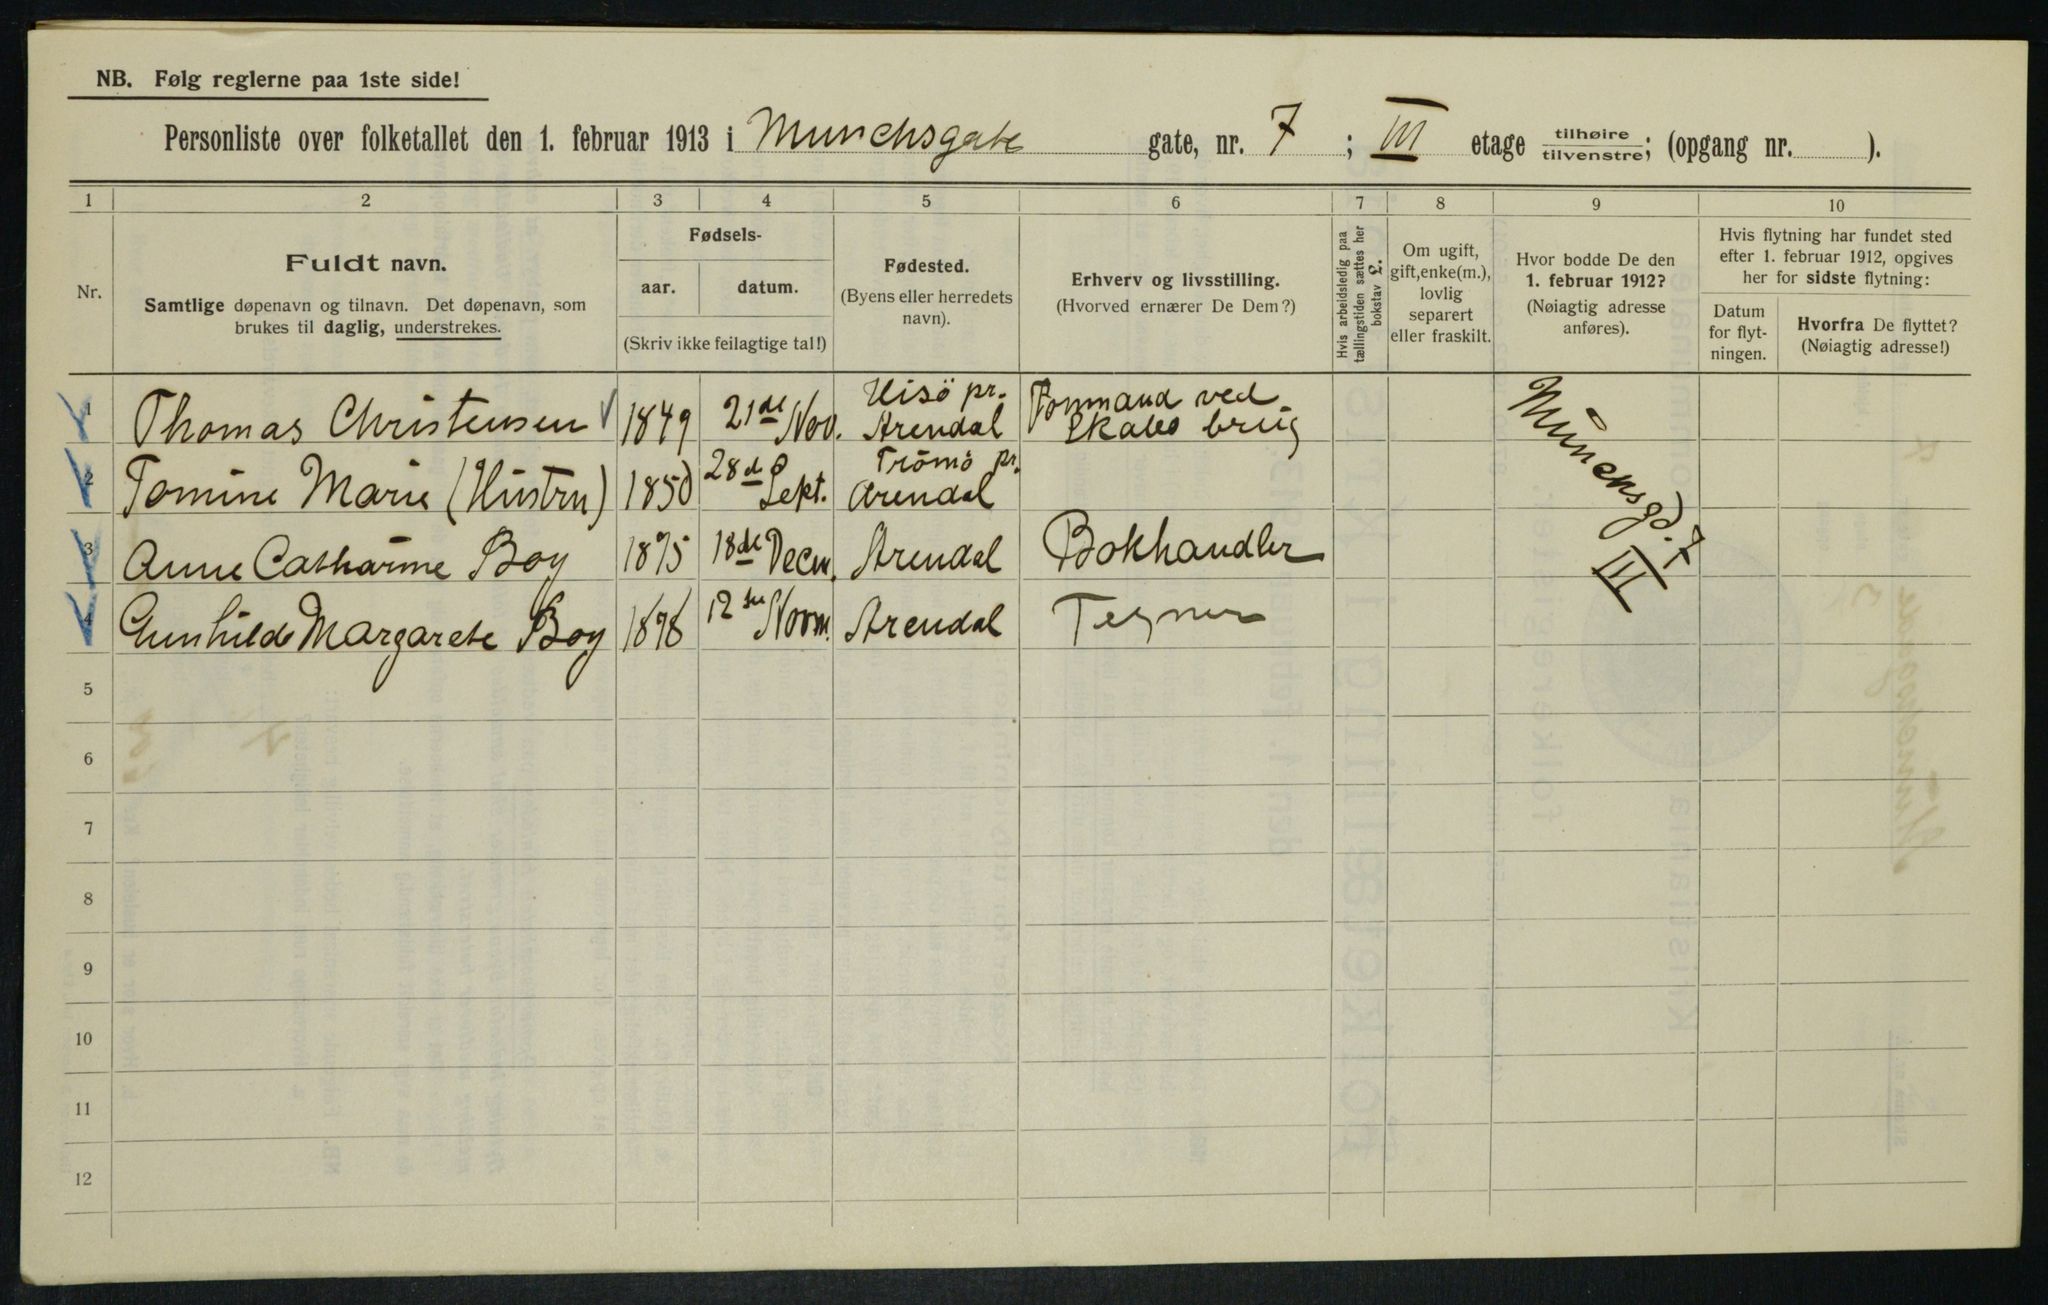 NB. Følg reglerne paa 1ste side!
Personliste over folketallet den 1. februar 1913 i Munchsgate gate, nr. 7 ; III etage tilhøire / tilvenstre; (opgang nr. ).
1 2 3 4 5 6 7 8 9 10
Nr.
Fuldt navn.
Samtlige døpenavn og tilnavn. Det døpenavn, som
brukes til daglig, understrekes.
Fødsels-
aar. datum.
(Skriv ikke feilagtige tal!)
Fødested.
(Byens eller herredets
navn).
Erhverv og livsstilling.
(Hvorved ernærer De Dem?)
Hvis arbeidsledig paa
tællingstiden sættes her
bokstav L.
Om ugift,
gift, enke(m.),
lovlig
separert
eller fraskilt.
Hvor bodde De den
1. februar 1912?
(Nøiagtig adresse
anføres).
Hvis flytning har fundet sted
efter 1. februar 1912, opgives
her for sidste flytning:
Datum
for flyt-
ningen.
Hvorfra De flyttet?
(Nøiagtig adresse!)
1 Thomas Christensen 1849 21de Nov. Hisö pr. Arendal Formand ved Skabo brug Munchsgd. 7 III
2 Tomine Marie (Hustru) 1850 28de Sept. Tromö pr. Arendal
3 Anne Catharine Boy 1875 18de Decm. Arendal Bokhandler
4 Gunhilde Margarete Boy 1878 12te Novm. Arendal Tegner
5
6
7
8
9
10
11
12